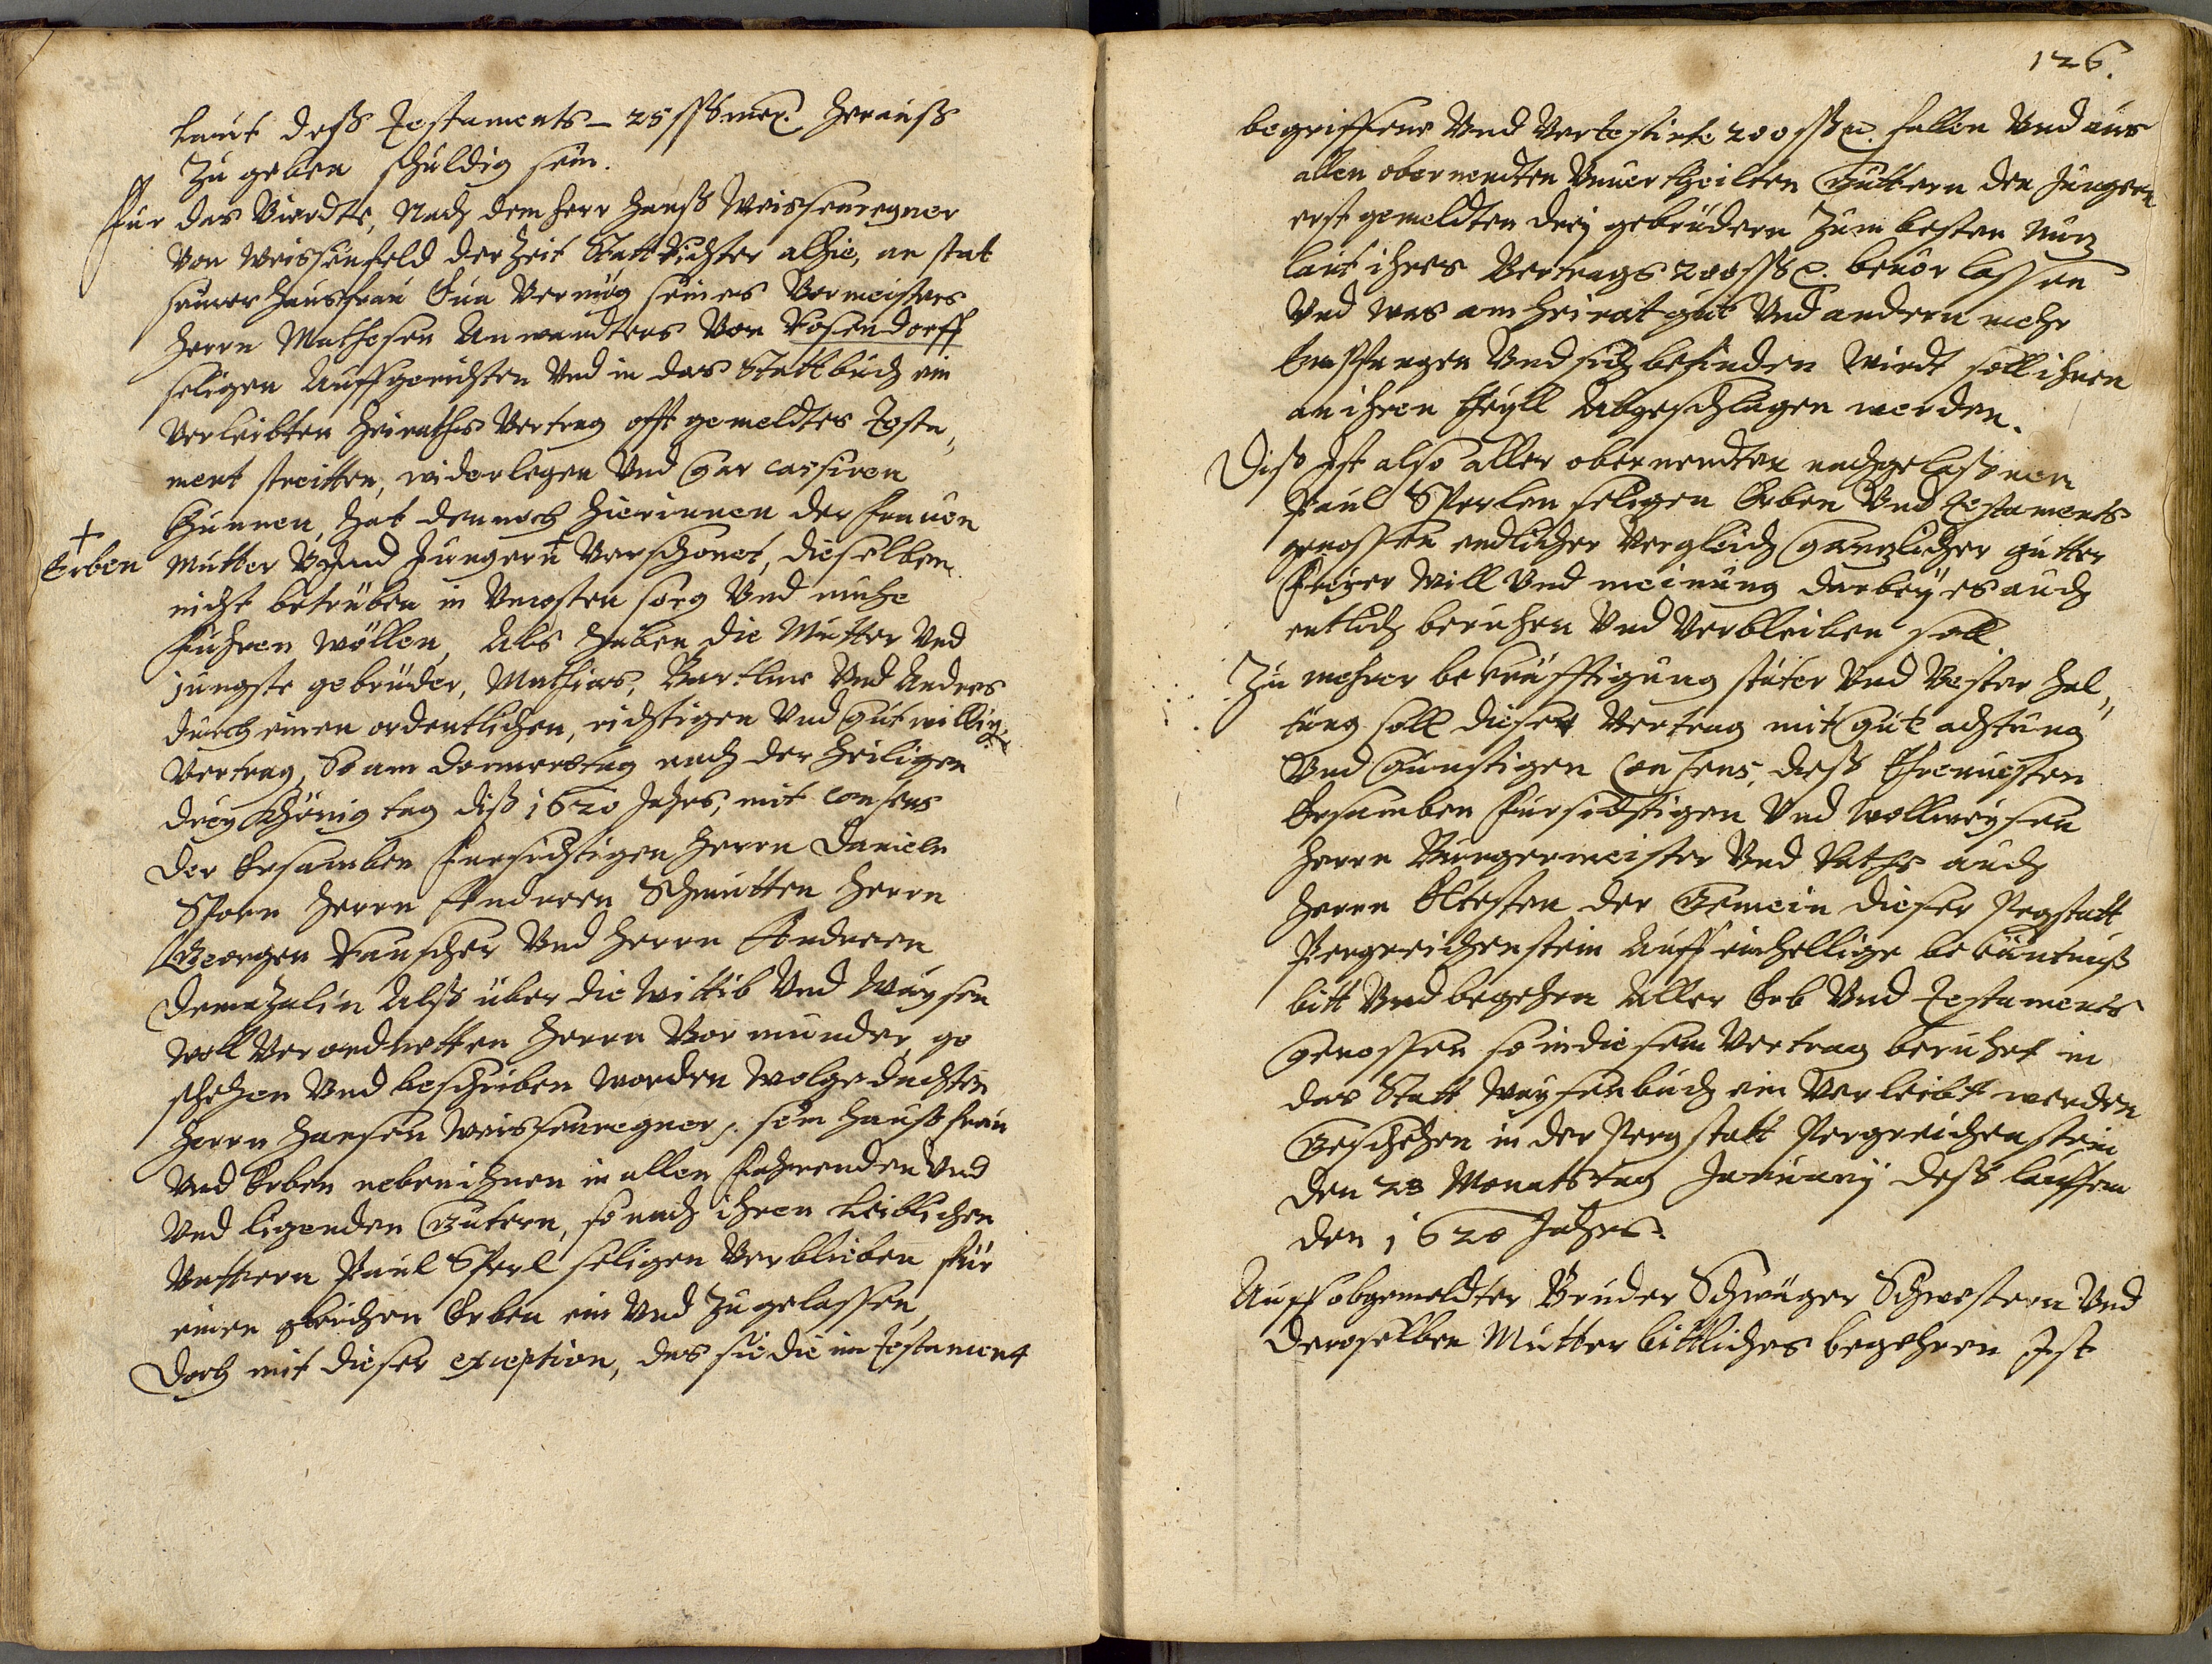 laut deß Testaments - 25 ßß meß. herauß
Zu geben schuldig sein.
Fur das Vierdte, Nach dem herr Hanß Weissenregner
Von Weissenfeld der Zeit Statt Richter alhie, an stat
seiner Hausfrau Eua Vermüg seines Vormeisters
Herrn Mathesen Anwandters Von Rosendorff
seligen Auffgerichten Vnd in das Stattbuch ein
Verleibten Heiraths Vertrag offt gemeldtes Testa,,
ment streitten, widerlegen Vnd Gar cassiren
Chunnen, hat dennoch hierinnen der Frauen
+
Erben
Mutter Vnd Jungern + Verschonet, dieselben
nicht betrüben in Vncosten sorg Vnd muhe
Fuhren wöllen, Als haben die Mutter Vnd
jungste gebrüder, Mathias, Bartlme Vnd Andres
durch einen ordentlichen, richtigen Vnd Gutwillig:
Vertrag, So am Donnerstag nach der Heiligen
drey Khönig tag diß 1620 Jahrs, mit consens
der Ersamben Fursichtigen Herrn Daniele
Sporn Herrn Andreen Schmutten Herrn
Georgen Rauscher Vnd Herrn Andreen
Demahalin Alß über die Wittib Vnd Waysen
woll Verordnetten Herrn Vormunder, ge
schehen Vnd beschriben worden Wolgedachten
Herrn Hansen Weissenregner /. sein haußfrau
Vnd Erben neben ihnen in allen Fahrenden Vnd
Vnd ligenden Gütern, so nach ihren Leiblichen
Vattern Paul Sperl seligen Verblieben für
einen gleichen Erben ein Vnd Zugelassen,
Doch mit dieser exception, das sie die im Testament
126.
begriffene Vnd Vertestirte 200 ßß m. fallen Vnd aus
allen obernendten Vnuertheilten Guttern den Jungern
erst gemeldten drey gebrüdern Zum besten Nutz
laut ihres Vertrags 200 ßß m. beuor lassen
Vnd was am Heirat gut Vnd andern mehr
Empfangen Vnd sich befinden Wirdt soll ihnen
an ihren theyll Abgeschlagen werden.
Diß Ist also aller obernendten nachgelaßnen
Paul Sperlen seligen Erben Vnd Testaments
genossen endlicher Vergleich Gänzlicher gutter
Freyer Will Vnd meinung darbey es auch
entlich beruhen Vnd Verbleiben soll
Zu mehrer bekräfftigung stäter Vnd Vester Hal,,
tung soll dieser Vertrag mit Gutachtung
Vnd Gunstigen Consens, deß Ehrnuesten
Ersamben Fursichtigen Vnd Wollweysen
Herrn Burgermeister Vnd Raths auch
Herrn Eltesten der Gemein dieser Pergstatt
Pergreichenstein Auff einhellige bekäntnuß
bitt Vnd begehrn Aller Erb Vnd Testaments
genossen so in diesem Vertrag beruhet in
das Statt Waysenbuch ein Verleibt werden
Geschehen in der Pergstatt Pergreichenstein
den 23 Monatstag January deß lauffen
den 1620 Jahrs.
Auff obgemeldter Bruder Schwäger Schwestern Vnd
deroselben Mutter bittliches begehren Ist